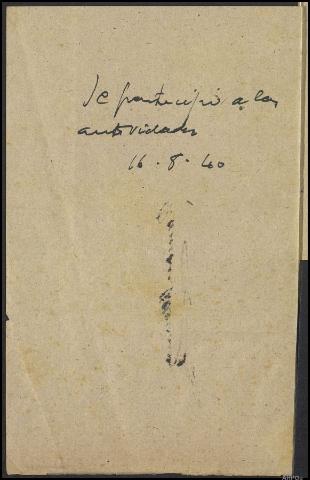 Se participó a las
autoridades
16 - 8 - 40